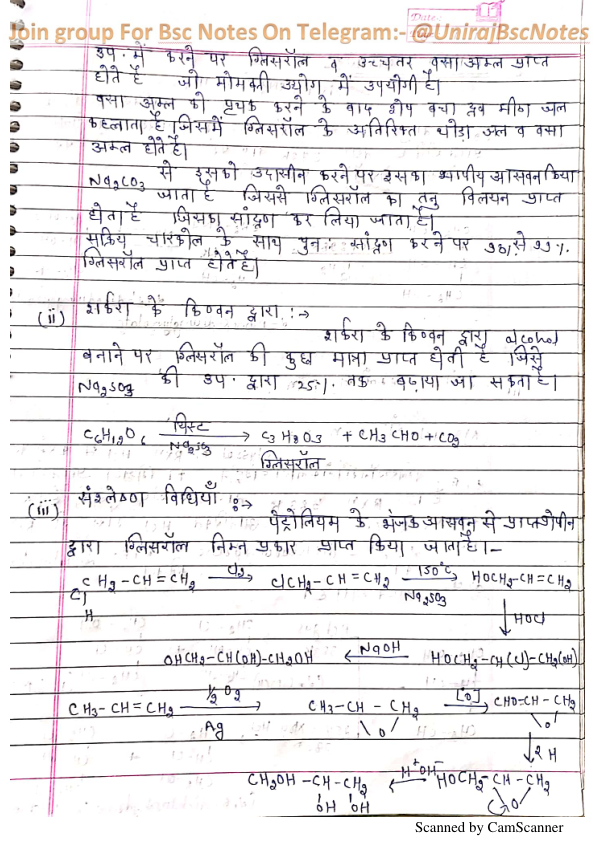 Join group For Bsc Notes On Telegram:- @UnirajBscNotes
Date:
उप. में करने पर ग्लिसरॉल व उच्चतर वसा अम्ल प्राप्त
होते है जो मोमबत्ती उद्योग में उपयोगी है।
वसा अम्ल को पृथक करने के बाद शेष बचा द्रव मीठा जल
कहलाता है जिसमें ग्लिसरॉल के अतिरिक्त थोड़ा जल व वसा
अम्ल होते है।
Na2CO3 से इसको उदासीन करने पर इसका भापीय आसवन किया
जाता है जिससे ग्लिसरॉल का तनु विलयन प्राप्त
होता है जिसका सांद्रण कर लिया जाता है।
सक्रिय चारकोल के साथ पुन: सांद्रण करने पर 90% से 99%
ग्लिसरॉल प्राप्त होते है।
(ii) शर्करा के किण्वन द्वारा :→
शर्करा के किण्वन द्वारा alcohol
बनाने पर ग्लिसरॉल की कुछ मात्रा प्राप्त होती है जिसे
Na2SO3 की उप. द्वारा (25%) तक बढ़ाया जा सकता है।
C6H12O6 यिस्ट Na2SO3 → C3H8O3 + CH3CHO + CO2
ग्लिसरॉल
(iii) संश्लेषण विधियाँ :→
पेट्रोलियम के भंजक आसवन से प्राप्त
द्वारा ग्लिसरॉल निम्न प्रकार प्राप्त किया जाता है।-
CH2-CH=CH2 Cl2 → ClCH2-CH=CH2 150°C Na2SO3 → HOCH2-CH=CH2
H
↓ HOCl
OHCH2-CH(OH)-CH2OH ← NaOH HOCH2-CH(Cl)-CH2(OH)
CH3-CH=CH2 ½O2 Ag → CH3-CH-CH2 [O] → CHO-CH-CH2
\O/ \O/
↓ 2H
CH2OH-CH-CH2 ← H+OH- HOCH2-CH-CH2
OH OH O
Scanned by CamScanner